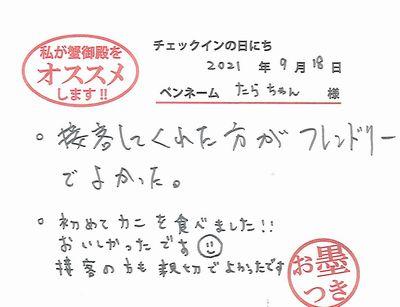 私が蟹御殿を
オススメ
します!!
チェックインの日にち
2021 年 9 月 18 日
ペンネーム たらちゃん 様
○ 接客してくれた方がフレンドリー
でよかった。
○ 初めてカニを食べました!!
おいしかったです
接客の方も親切でよかったです
お墨
つき